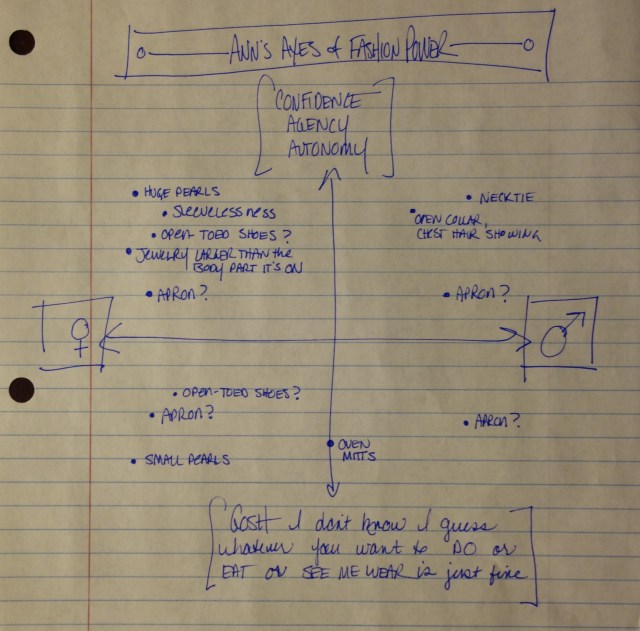 ANN'S AXES of FASHION POWER
CONFIDENCE
AGENCY
AUTONOMY
• HUGE PEARLS
• SLEEVELESSNESS
• OPEN-TOED SHOES?
• JEWELRY LARGER THAN the
BODY PART IT'S ON
• APRON?
• NECKTIE
• OPEN COLLAR,
CHEST HAIR SHOWING
• APRON?
♀
♂
• OPEN-TOED SHOES?
• APRON?
• SMALL PEARLS
• APRON?
• OVEN
MITTS
GOSH I don't know I guess
whatever you want to DO or
EAT or SEE ME WEAR is just fine